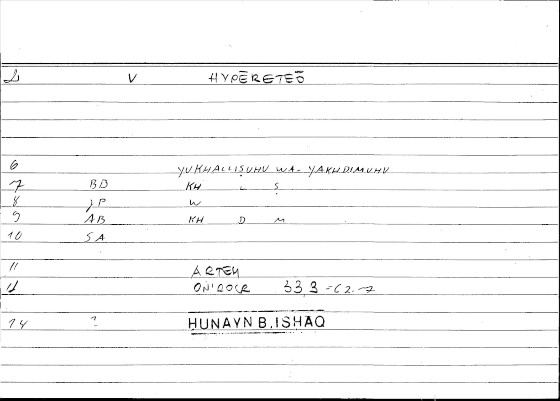 V HYPĒRETEŌ
6 YUKHALLIṢUHU WA-YAKHDIMUHU
7 BB KH L Ṣ
8 JP W
9 AB KH D M
10 SA
11 ARTEM
ONIROCR 33,3
14 HUNAYN B. ISHAQ